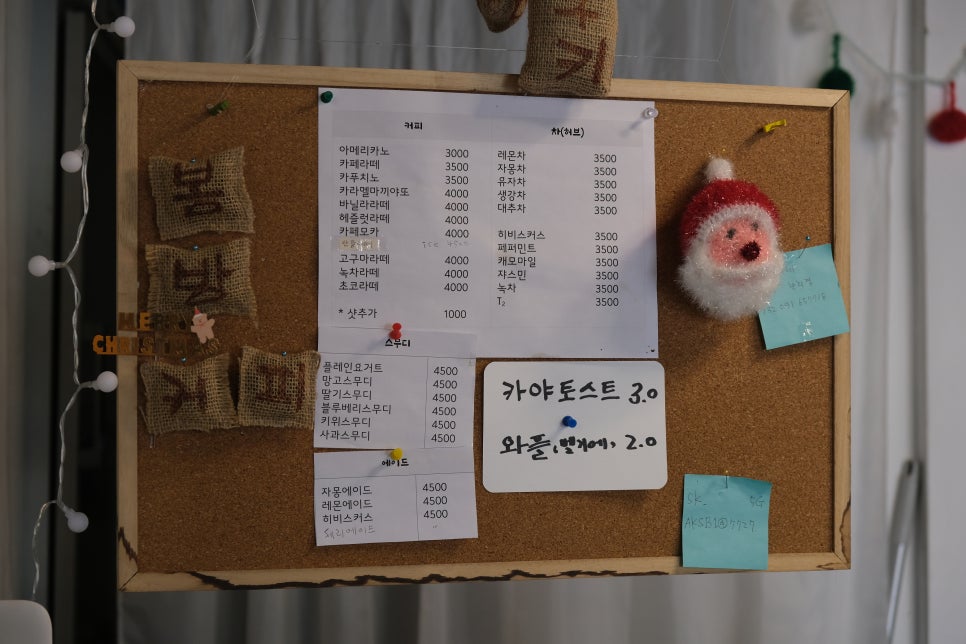 봄
밤
커
피
MERRY
CHRISTMAS
커피
아메리카노 3000
카페라떼 3500
카푸치노 3500
카라멜마끼야또 4000
바닐라라떼 4000
헤즐럿라떼 4000
카페모카 4000
고구마라떼 4000
녹차라떼 4000
초코라떼 4000
* 샷추가 1000
차(허브)
레몬차 3500
자몽차 3500
유자차 3500
생강차 3500
대추차 3500
히비스커스 3500
페퍼민트 3500
캐모마일 3500
쟈스민 3500
녹차 3500
T₂ 3500
스무디
플레인요거트 4500
망고스무디 4500
딸기스무디 4500
블루베리스무디 4500
키위스무디 4500
사과스무디 4500
에이드
자몽에이드 4500
레몬에이드 4500
히비스커스 4500
체리에이드 "
카야토스트 3.0
와플(벨기에) 2.0
SK_ 5G